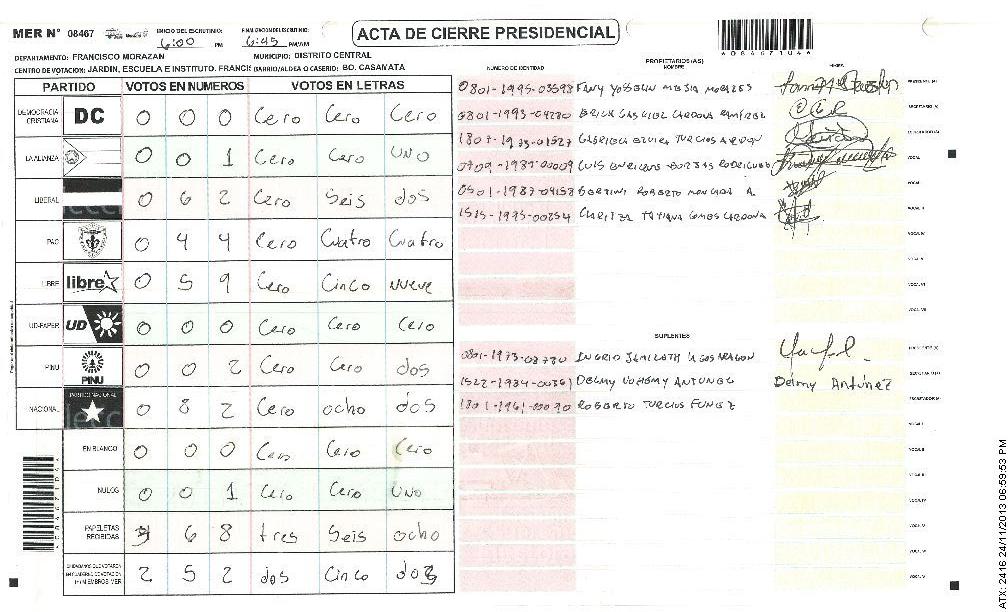 MER N° 08467
INICIO DEL ESCRUTINIO: 6:00 PM
FINALIZACION DEL ESCRUTINIO: 6:45 PM/AM
ACTA DE CIERRE PRESIDENCIAL
DEPARTAMENTO: FRANCISCO MORAZAN MUNICIPIO: DISTRITO CENTRAL
CENTRO DE VOTACION: JARDIN, ESCUELA E INSTITUTO. FRANCI BARRIO/ALDEA O CASERIO: BO. CASAMATA
PARTIDO VOTOS EN NUMEROS VOTOS EN LETRAS
DEMOCRACIA CRISTIANA DC 0 0 0 Cero Cero Cero
LA ALIANZA 0 0 1 Cero Cero UNO
LIBERAL 0 6 2 Cero Seis dos
PAC 0 4 4 Cero Cuatro Cuatro
LIBRE libre 0 5 9 Cero Cinco nueve
UD-FAPER UD 0 0 0 Cero Cero Cero
PINU PINU 0 0 2 Cero Cero dos
NACIONAL PARTIDO NACIONAL 0 8 2 Cero ocho dos
EN BLANCO 0 0 0 Cero Cero Cero
NULOS 0 0 1 Cero Cero UNO
PAPELETAS RECIBIDAS 3 6 8 tres Seis ocho
2 5 2 dos Cinco dos
NUMERO DE IDENTIDAD PROPIETARIOS (AS) NOMBRE FIRMA
0801-1995-03598 FANY YOSSELIN MEJIA MORALES
0801-1993-04280 ERICK GASKIEL CARDONA RAMIREZ
1807-1973-01527 GABRIELA ELVIRA TURCIOS ARDON
LUIS ENRIQUE BORJAS RODRIGUEZ
0501-1987-04158 BERTINI ROBERTO MONCADA A.
1515-1975-00254 CARITZA TATIANA GOMES CARDONA
SUPLENTES
0801-1973-08730 INGRID
1522-1984-00351 DELMY NOHEMY ANTUNEZ Delmy Antúnez
1801-1961-00090 ROBERTO TURCIOS FUNEZ
ATX: 2416 24/11/2013 06:59:53 PM